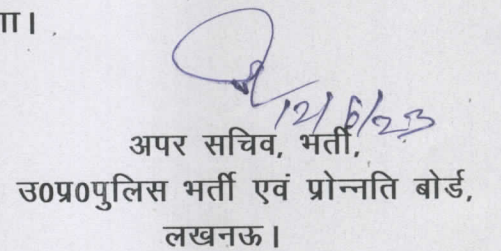 ाा।
12/6/23
अपर सचिव, भर्ती,
उ0प्र0पुलिस भर्ती एवं प्रोन्नति बोर्ड,
लखनऊ।